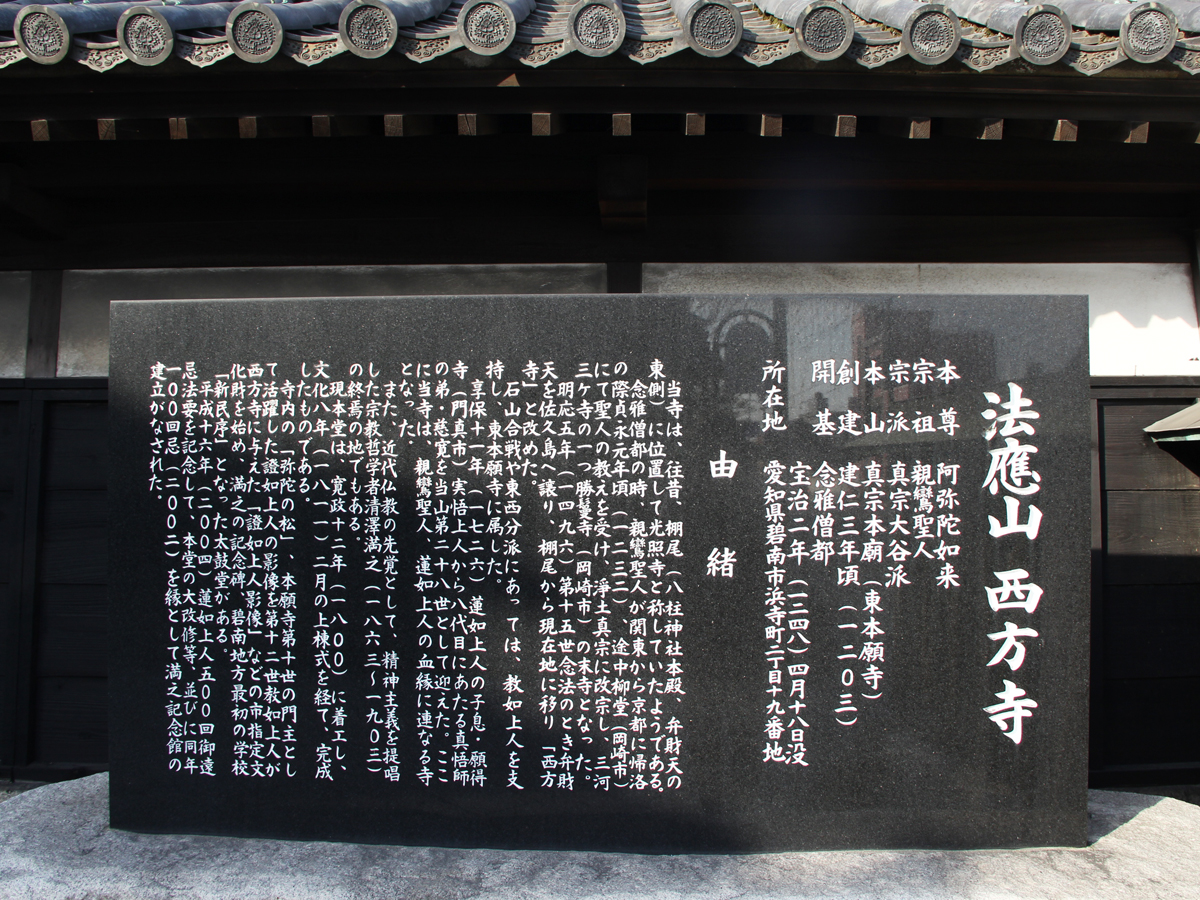 法應山 西方寺
本尊 阿弥陀如来
宗祖 親鸞聖人
宗派 真宗大谷派
本山 真宗本廟（東本願寺）
創建 建仁三年頃（一二〇三）
開基 念雅僧都
宝治二年（一二四八）四月十八日没
所在地 愛知県碧南市浜寺町二丁目十九番地
由緒
当寺は、往昔、棚尾（八柱神社本殿、弁財天の
東側）に位置して光照寺と称していたようである。
念雅僧都の時、親鸞聖人が関東から京都に帰洛
の際貞・永元年頃（一二三二）、途中柳堂（岡崎市）
にて聖人の教えを受け、淨土真宗に改宗し、三河
三ケ寺の一つ勝鬘寺（岡崎市）の末寺となった。
明応五年（一四九六）第十五世念法のとき弁財
天を佐久島へ譲り、棚尾から現在地に移り「西方
寺」と改めた。
石山合戦や東西分派にあっては、教如上人を支
持し、東本願寺に属した。
享保十一年（一七二六）蓮如上人の子息・願得
寺（門真市）実悟上人から八代目にあたる真悟師
の弟・慈寛を当山第二十八世として迎えた。ここ
に当寺は、親鸞聖人、蓮如上人の血縁に連なる寺
となった
また、近代仏教の先覚として、精神主義を提唱
した宗教哲学者清澤満之（一八六三〜一九〇三）
の終焉の地でもある。
現本堂は、寛政十二年（一八〇〇）に着工し、
文化八年（一八一一）二月の上棟式を経て、完成
したものである。
寺内の「弥陀の松」、本願寺第十世の門主とし
て活躍した證如上人の影像を第十二世教如上人が
西方寺に与えた「證如上人影像」などの市指定文
化財を始め、満之の記念碑、碧南地方最初の学校
「新民序」となった太鼓堂がある。
平成十六年（二〇〇四）蓮如上人五〇〇回御遠
忌法要を記念して、本堂の大改修等、並びに同年
一〇〇回忌（二〇〇二）を縁として満之記念館の
建立がなされた。